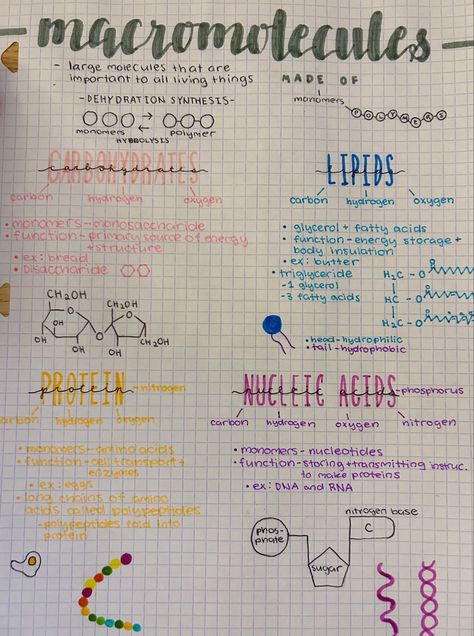 macromolecules
- large molecules that are
important to all living things
MADE OF
monomers
POLYMERS
- DEHYDRATION SYNTHESIS -
monomers
polymer
HYDROLYSIS
CARBOHYDRATES
carbohydrates
carbon hydrogen oxygen
• monomers - monosaccharide
• function - primary source of energy
+ structure
• ex: bread
• Disaccharide
CH₂OH
CH₂OH
O
O
OH
OH
OH
O
OH
OH
CH₂OH
LIPIDS
carbon hydrogen oxygen
• glycerol + fatty acids
• function - energy storage +
body insulation
• ex: butter
• triglyceride
- 1 glycerol
- 3 fatty acids
H₂C - O
HC - O
H₂C - O
• head - hydrophilic
• tail - hydrophobic
PROTEIN
protein
nitrogen
carbon hydrogen oxygen
• monomers - amino acids
• function - cell transport +
enzymes
• ex: eggs
• long chains of amino
acids called polypeptides
- polypeptides fold into
protein
NUCLEIC ACIDS
nucleic acids
phosphorus
carbon hydrogen oxygen nitrogen
• monomers - nucleotides
• function - storing + transmitting instruc.
to make proteins
• ex: DNA and RNA
phos-
phate
sugar
nitrogen base
C